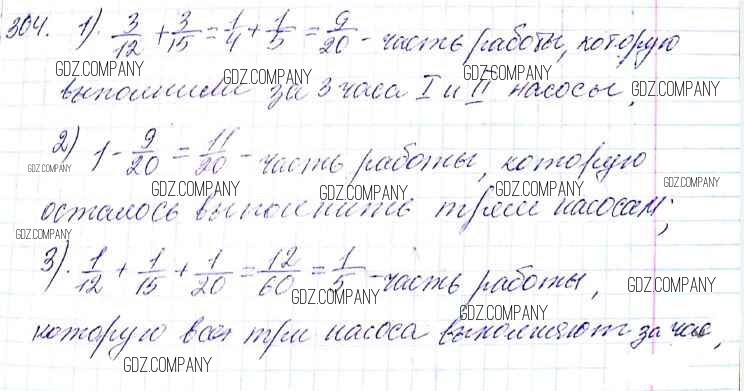 304. 1). 3/12 + 3/15 = 1/4 + 1/5 = 9/20 - часть работы, которую
GDZ.COMPANY GDZ.COMPANY GDZ.COMPANY
выполнили за 3 часа I и II насосы, GDZ.COMPANY
2) 1 - 9/20 = 11/20 - часть работы, которую
GDZ.COMPANY GDZ.COMPANY GDZ.COMPANY GDZ.COMPANY GDZ.COMPANY
осталось выполнить трём насосам;
GDZ.COMPANY
3). 1/12 + 1/15 + 1/20 = 12/60 = 1/5 - часть работы,
GDZ.COMPANY GDZ.COMPANY GDZ.COMPANY
которую все три насоса выполняют за час,
GDZ.COMPANY